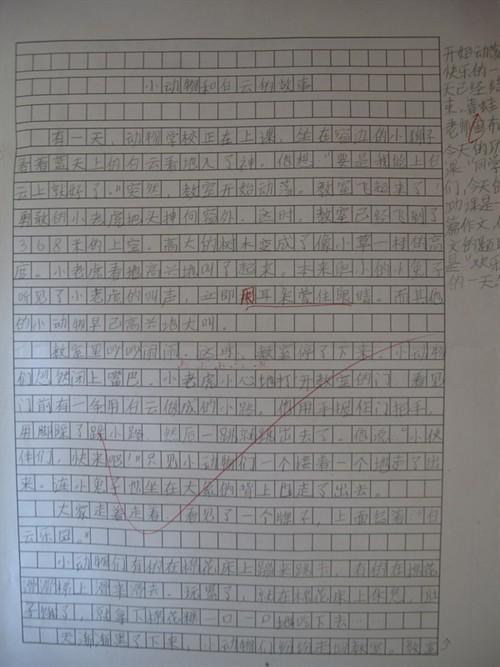 小动物和白云的故事
有一天，动物学校正在上课，坐在窗边的小猴子
看着蓝天上的白云看地入了神。他想："要是我能上白
云上就好了。"突然，教室开始动荡。教室飞起来了！
勇敢的小老虎把头伸向窗外，这时，教室已经飞到了
368米的上空。高大的树木变成了像小草一样的高
度。小老虎看地高兴地叫了起来。本来胆小的小兔子
听见了小老虎的叫声，立即用耳朵蒙住眼睛。而其他
的小动物早已高兴地大叫。
教室里吵吵闹闹。这时，教室停了下来。小动物
们忽然闭上嘴巴。小老虎小心地打开教室的门，看见
门前有一条用白云做成的小路。他用手握住门把手，
用脚踩了踩小路，然后一蹦就蹦出去了。他说："小伙
伴们，快来吧！"只见小动物们一个接着一个地走了出
来。连小兔子也坐在大象的背上走了出去。
大家走着走着，看见了一个牌子，上面写着："白
云乐园。"
小动物们有的在棉花床上蹦来蹦去，有的在棉花
滑滑梯上滑来滑去。玩累了，就在棉花床上休息，肚
子饿了，就拿下棉花糖一口一口地吃下去。
天渐渐黑了下来，小动物们纷纷走回教室。教室
开始动荡
快乐的一
天已经
来。
老师宣布
今天的功
课："同学
们，今天的
功课是一
篇作文，作
文的题目
是"欢乐
的一天"